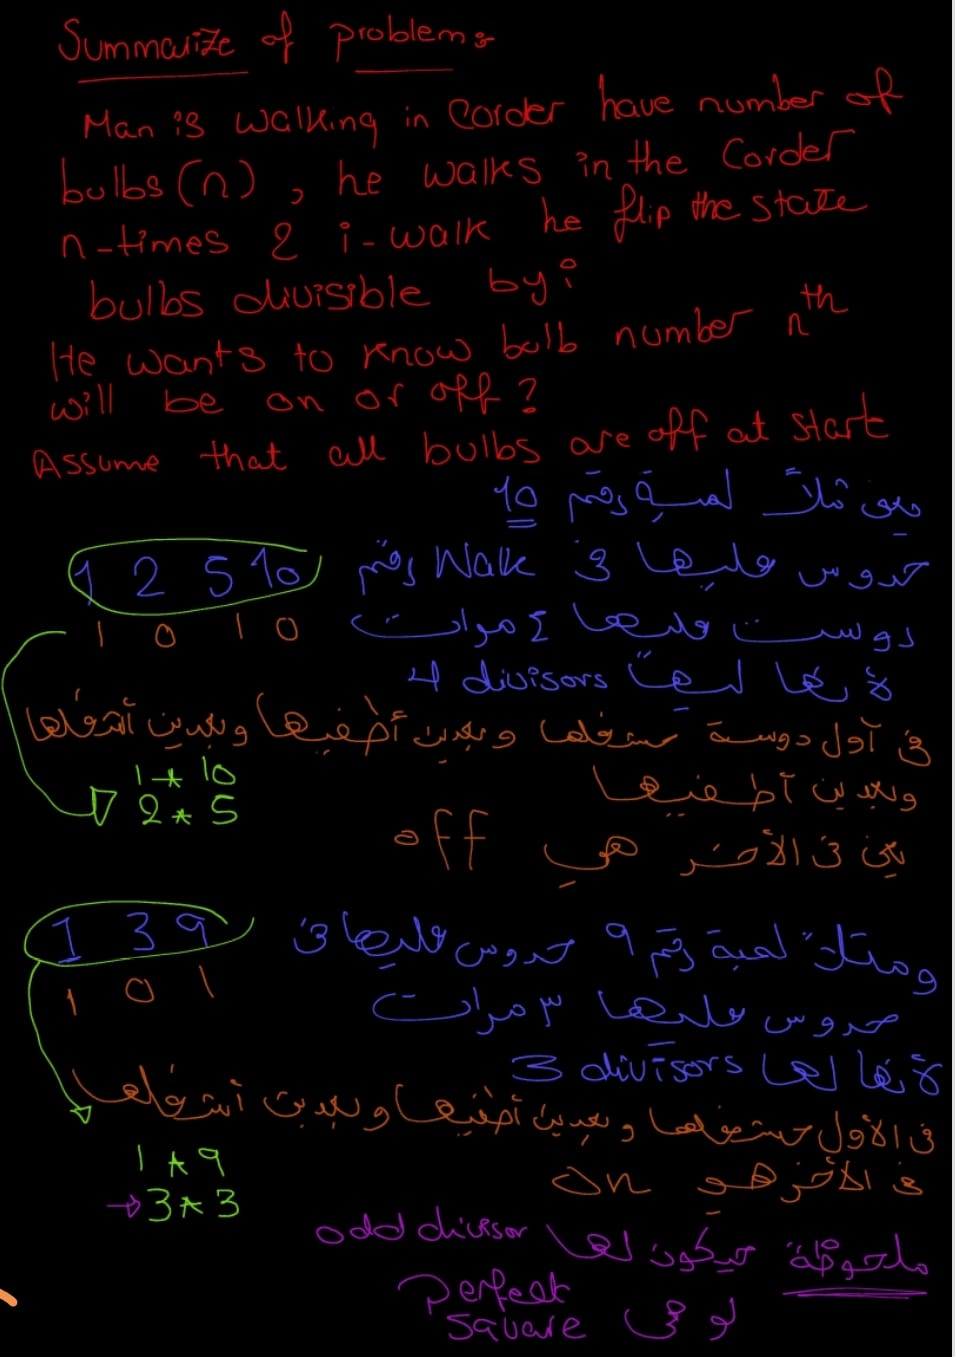 Summarize of problem:
Man is walking in Corder have number of
bulbs (n) , he walks in the Corder
n-times & i-walk he flip the state
bulbs divisible by i
He wants to know bulb number nth
will be on or off?
Assume that all bulbs are off at start
يعنى مثلاً لمبة رقم 10
حدوس عليها فى Walk رقم 1 2 5 10
1 0 1 0
دوست عليها ٤ مرات
لأنها ليها 4 divisors
فى أول دوسة حشغلها وبعدين أطفيها وبعدين أشغلها
وبعدين أطفيها
1 * 10
2 * 5
يعنى فى الأخر هى off
ومثلاً لمبة رقم 9 حدوس عليها فى 1 3 9
1 0 1
حدوس عليها ٣ مرات
لأنها لها 3 divisors
فى الأول حشغلها وبعدين أطفيها وبعدين أشغلها
فى الأخر هو on
1 * 9
3 * 3
ملحوظة حيكون لها odd divisor
لو هى perfect
square